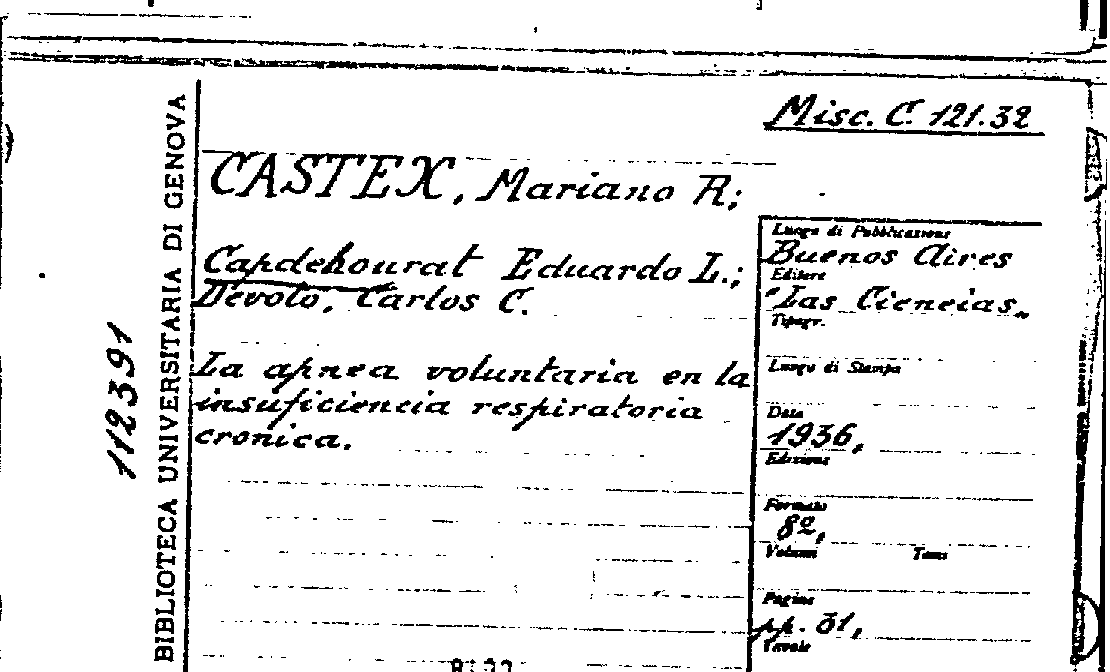 Misc. C. 121.32
CASTEX, Mariano R;
Capdehourat Eduardo L.;
Devoto, Carlos C.
La apnea voluntaria en la
insuficiencia respiratoria
cronica.
Luogo di Pubblicazione
Buenos Aires
Editore
"Las Ciencias„
Tipogr.
Luogo di Stampa
Data
1936,
Edizione
Formato
8º,
Volumi Tomi
Pagine
pp. 31,
Tavole
BIBLIOTECA UNIVERSITARIA DI GENOVA
112391